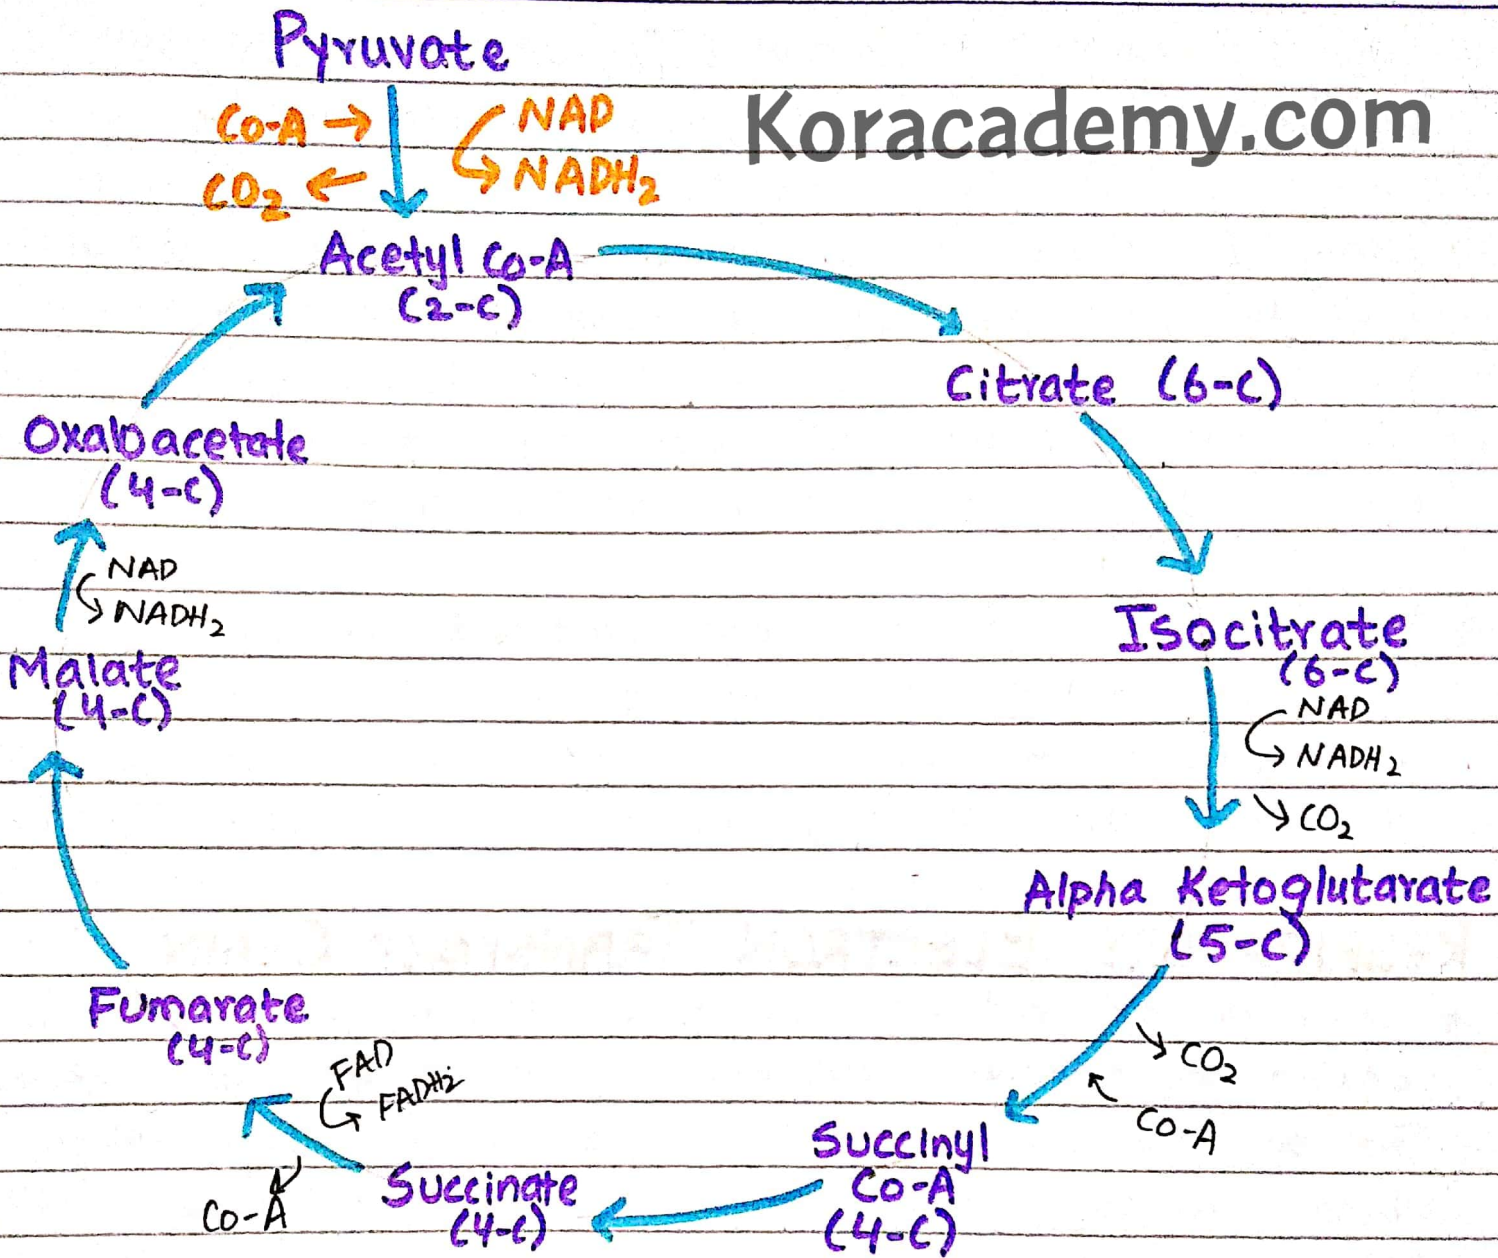 Pyruvate
Co-A → NAD
CO₂ ← NADH₂
Koracademy.com
Acetyl Co-A
(2-C)
Citrate (6-C)
Isocitrate
(6-C)
NAD
NADH₂
CO₂
Alpha Ketoglutarate
(5-C)
CO₂
Co-A
Succinyl
Co-A
(4-C)
Succinate
(4-C)
FAD
FADH₂
Co-A
Fumarate
(4-C)
Malate
(4-C)
NAD
NADH₂
Oxaloacetate
(4-C)